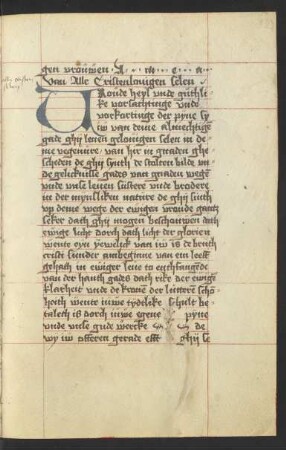 gen vrouwen A · m · e · n ·
Van Alle Cristenlouigen selen
Vroude heyl vnde guthlik
ke vorsachtinge vnde
vorkortinge der pyne sy
iw van deme Almechtigen
gade ghy leuen gelouigen selen in de
me vegeuure van hir in gnaden ghe
scheden de ghy synth de stalten bilde vn
de gelicknisse gades van gnaden wegen
vnde vnse leuen sustere vnde brodere
in der mynsliken nature de ghy synth
vp deme wege der ewigen vroude gantz
seker dath ghy mogen beschouwen dath
ewige licht dorch dath licht der glorien
wente eyn yewelick van iw is de broth
criste sunder anbeginne van en leeff
gehath in ewiger leue to entfangende
van der hanth gades dath rike der ewigen
klarheit vnde de kronen der luttere scho
heith wente iuwe tydelike schult be
talet is dorch iuwe egene pyne
vnde vnse gude wercke de
wy iw offeren gerade efft ghy le